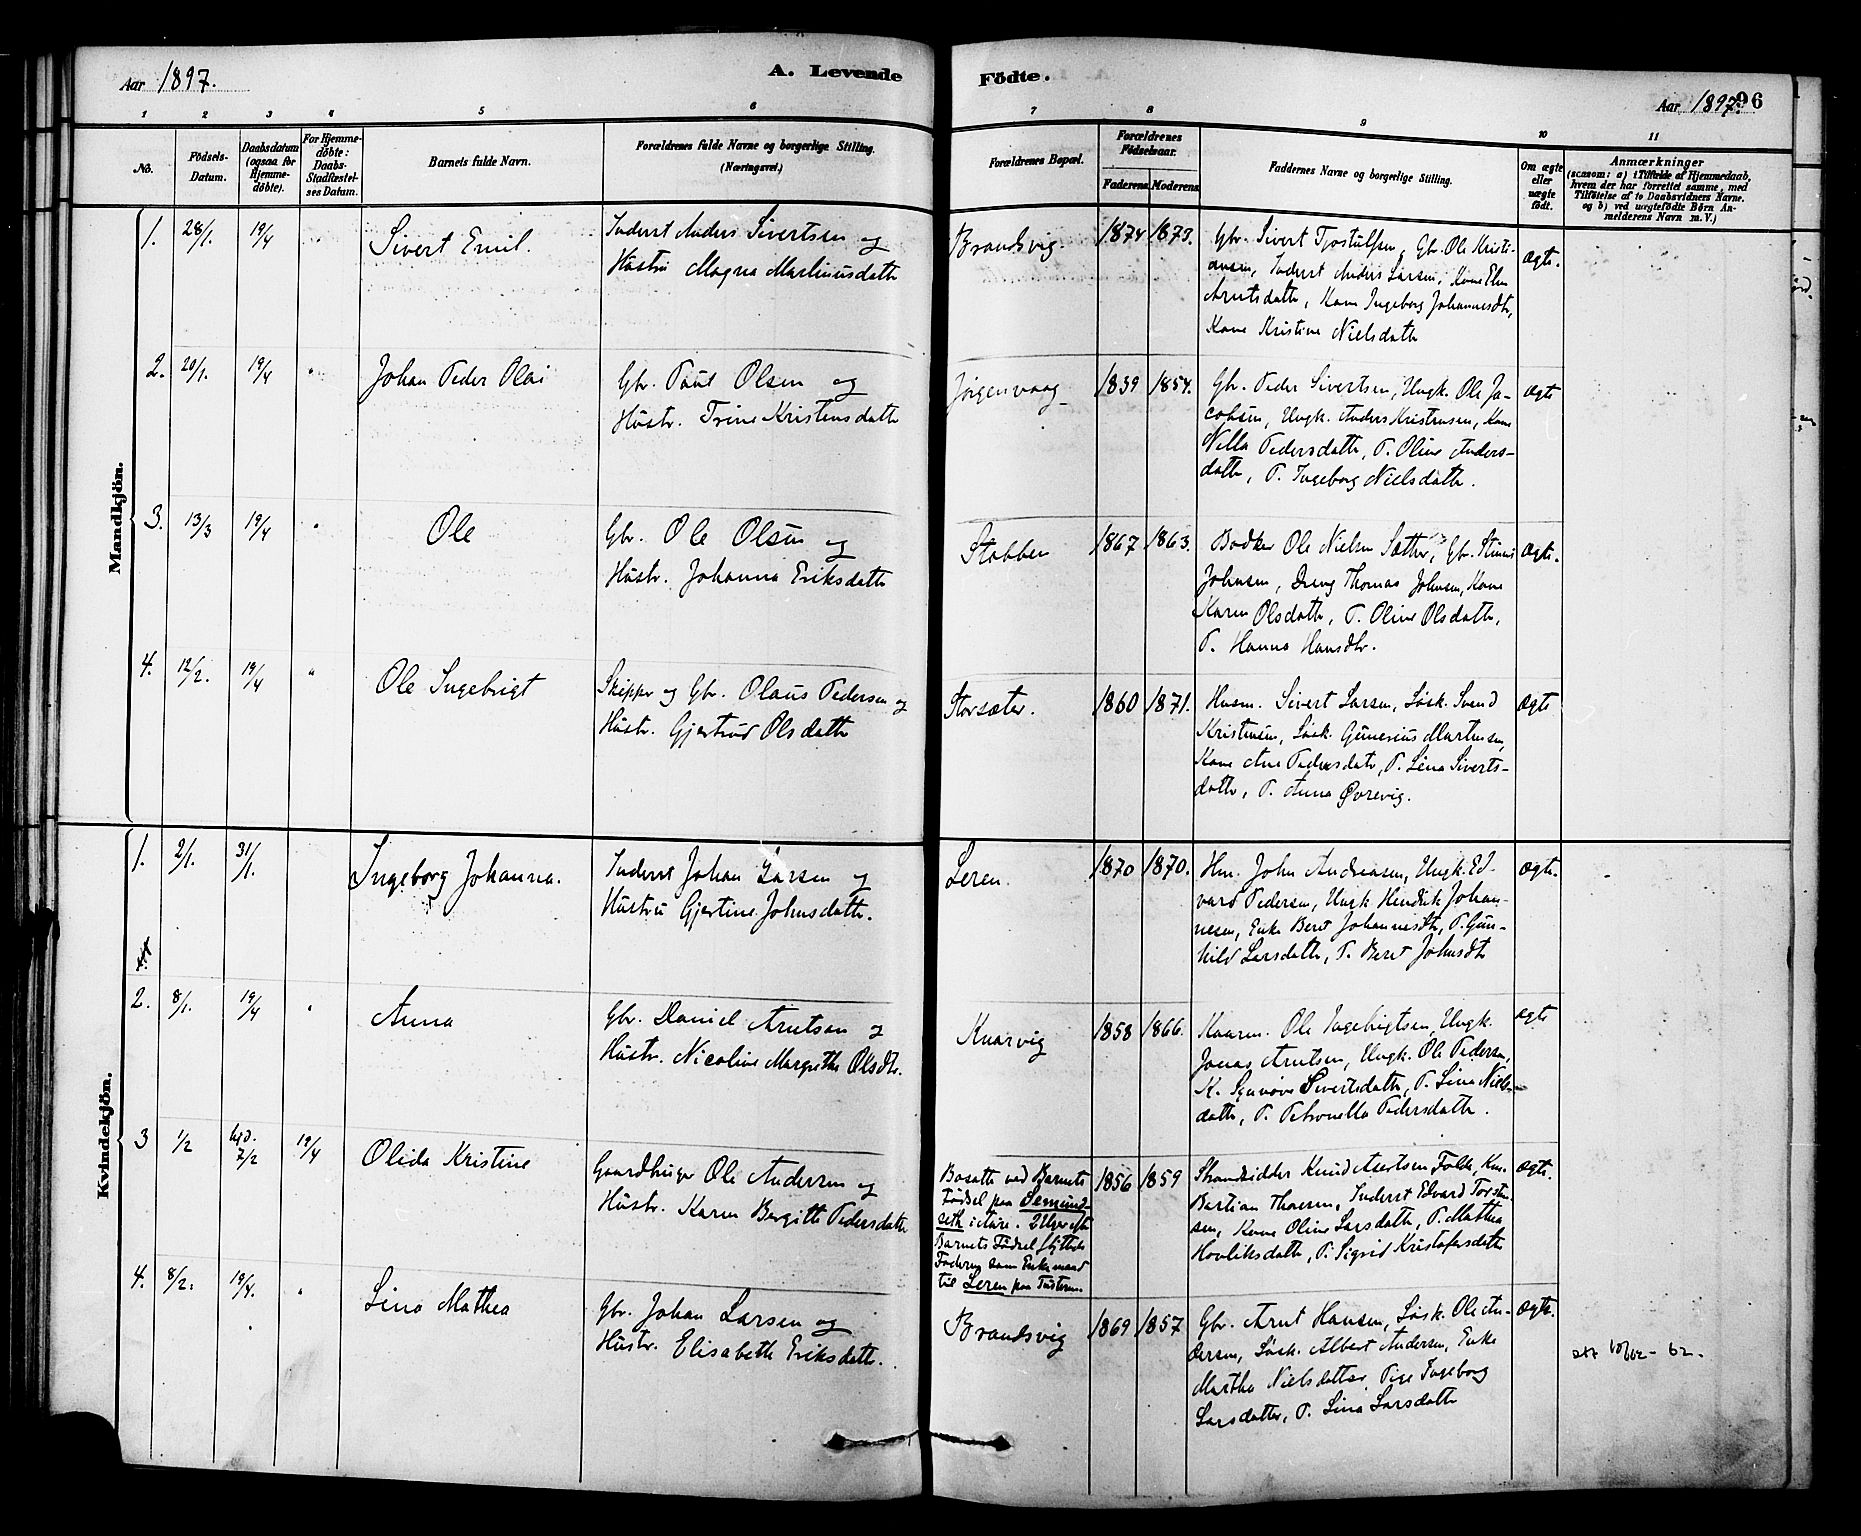 Aar 1897.
A. Levende
Födte.
Aar 1897.
96
1 2 3 4 5 6 7 8 9 10 11
No.
Födsels-
Datum.
Daabsdatum
(ogsaa for
Hjemme-
döbte).
For Hjemme-
döbte:
Daabs-
Stadfæstel-
ses Datum.
Barnets fulde Navn.
Forældrenes fulde Navne og borgerlige Stilling.
(Næringsvei.)
Forældrenes Bopæl.
Forældrenes
Födselsaar.
Faderens. Moderens.
Faddernes Navne og borgerlige Stilling.
Om ægte
eller
uægte
födt.
Anmærkninger
(saasom: a) i Tilfælde af Hjemmedaab,
hvem der har forrettet samme, med
Tilföielse af to Daabsvidners Navne.
og b) ved uægtefödte Börn An-
melderens Navn m. V.)
Mandkjön.
1. 28/1. 19/4 Sivert Emil.
Inderst Anders Sivertsen og
Hustru Magna Martinusdatte
Brandsvig 1874 1873.
Gbr. Sivert Tjostulfsen, Gbr. Ole Kristi-
ansen, Inderst Anders Larsen, Kone Elen
Arntsdatte, Kone Ingeborg Johannesdtr,
Kone Kristine Nielsdatte
Ægte.
2. 20/1. 19/4 " Johan Peder Olai
Gbr. Paul Olsen og
Hustr. Trine Kristensdatte
Jörgenvaag 1839 1854.
Gbr. Peder Sivertsen, Ungk. Ole Ja-
cobsen, Ungk. Anders Kristensen, Kone
Nilla Pedersdatte, P. Oline Anders-
datte, P. Ingeborg Nielsdatte.
Ægte
3. 13/3 19/4 " Ole
Gbr. Ole Olsen og
Hustr. Johanna Eriksdatte
Stabben 1867 1863.
Bødker Ole Nielsen Sætter, Gbr.
Johnsen, Dreng Thomas Johnsen, Kone
Karen Olsdatte, P. Oline Olsdatte,
P. Hanna Hansdtr.
Ægte.
4. 12/2. 19/4 " Ole Ingebrigt
Skipper og Gbr. Olaus Pedersen og
Hustr. Gjertrud Olsdatte
Storsæter. 1860 1871.
Husm. Sivert Larsen, Løsk. Svend
Kristensen, Løsk. Gunerius Martinsen,
Kone Ane Pedersdatte, P. Lina Siverts-
datte, P. Anna Øvrevig.
Ægte
Kvindekjön.
1. 2/1. 31/1. Ingeborg Johanna.
Inderst Johan Larsen og
Hustru Gjertine Johnsdatte.
Leren. 1870 1870.
Hm. John Andreasen, Ungk. Ed-
vard Pedersen, Ungk Hendrik Johan-
nesen, Enke Beret Johannesdtr, P. Gun-
hild Larsdatte, P. Beret Johnsdtr
Ægte.
2. 8/1. 19/4 " Anna
Gbr. Daniel Arntsen og
Hustr. Nicoline Margrethe Olsdtr.
Knarvig 1858 1866.
Kaarm. Ole Ingebrigtsen, Ungk.
Jonas Arntsen, Ungk. Ole Pedersen,
K. Synnøve Sivertsdatte, P. Lina Niels-
datte, P. Petronella Pedersdatte.
Ægte
3 1/2 hjd. 7/2 19/4 Olida Kristine
Gaardbruger Ole Andersen og
Hustr. Karen Bergitte Pedersdatte
Bosatte ved Barnets
Födsel paa Semund-
seth i Aure. 2 Uger eft
Barnets Födsel flyttede
Faderen som Enkemand
til Leren paa Tusteren.
1856 1859
Strandsidder Knud Asertsen Folde, Km.
Bastian Thoresen, Inderst Edvard Torsten-
sen, Kone Oline Larsdatte, P. Mathea
Hovliksdatte, P. Sigrid Kristofersdatte
Ægte.
4. 8/2. 19/4. " Lina Mathea
Gbr. Johan Larsen og
Hustr. Elisabeth Eriksdatte.
Brandsvig 1869 1857
Gbr. Arnt Hansen, Løsk. Ole An-
dersen, Løsk. Albert Andersen, Enke
Martha Nielsdatter, Pige Ingeborg
Larsdatter, P. Lina Larsdatte
Ægte.
- 62.